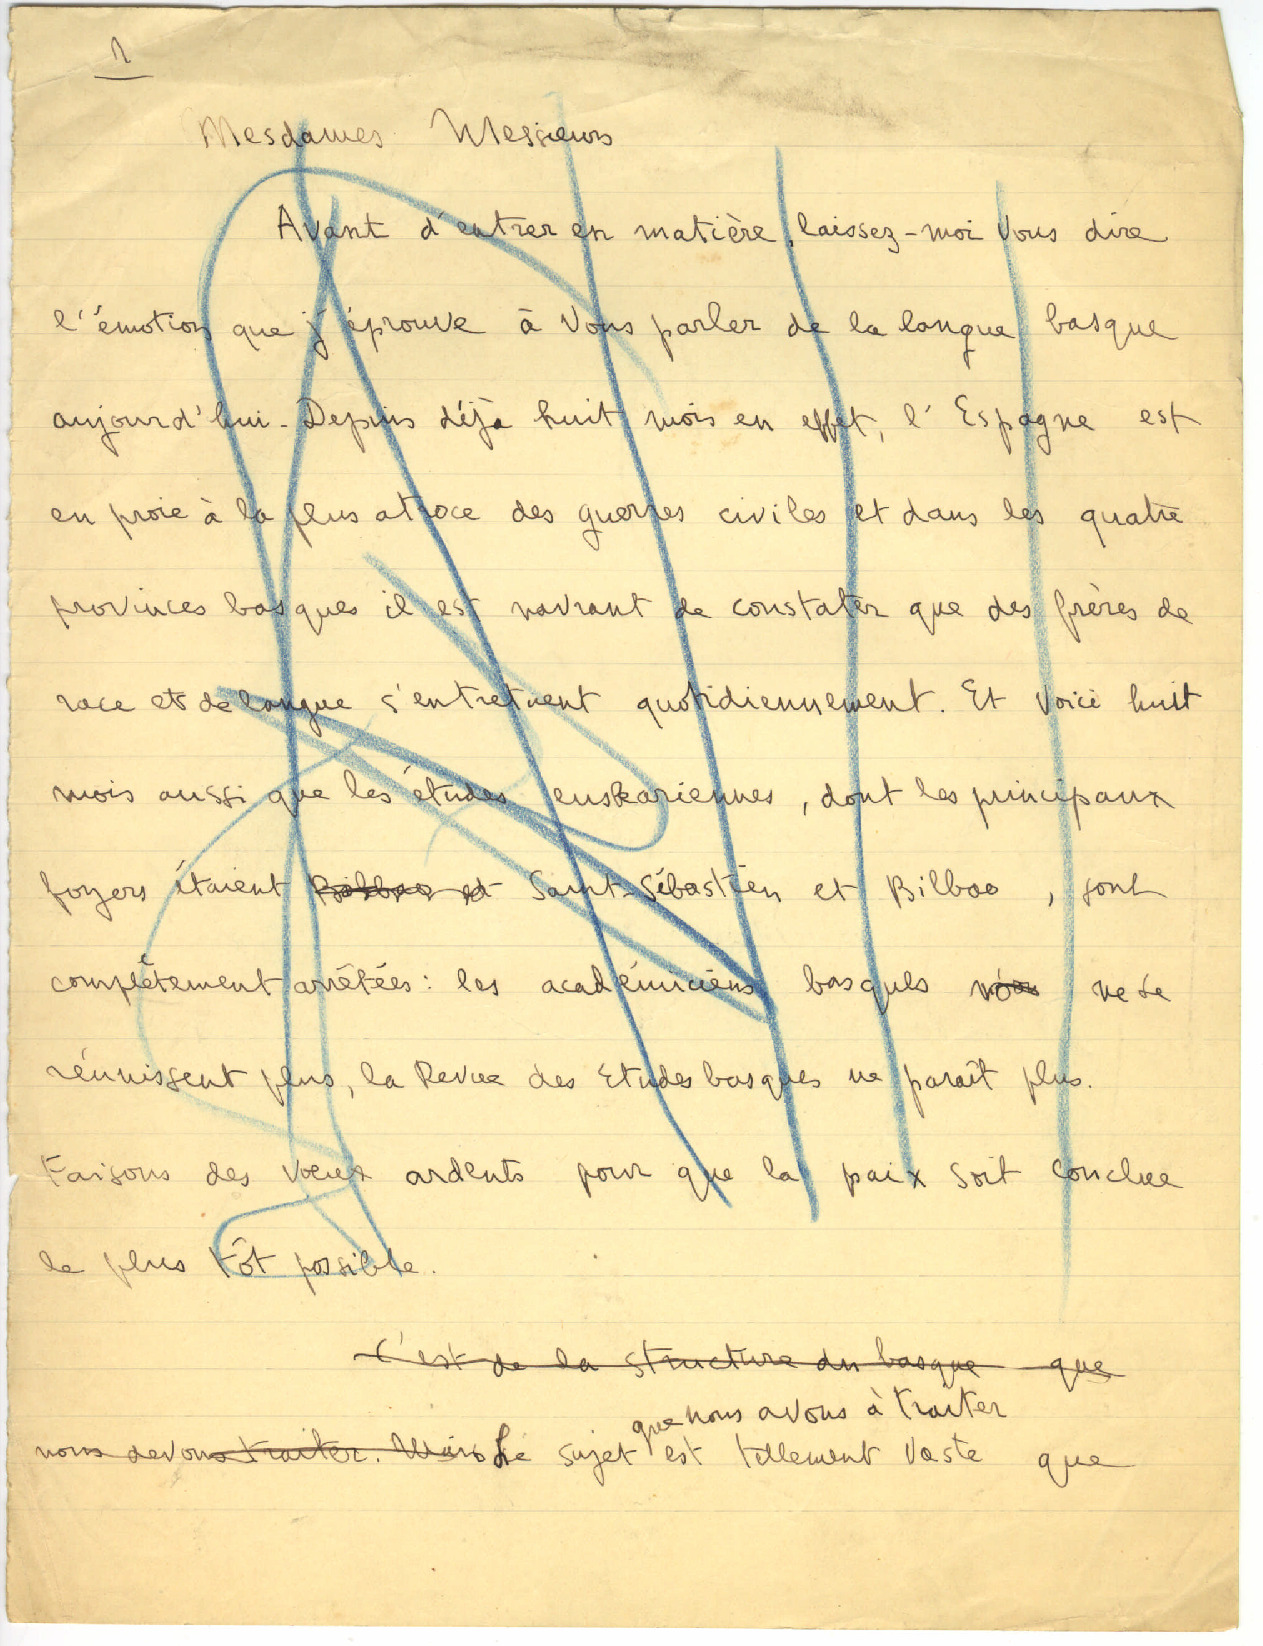 1
Mesdames Messieurs
Avant d'entrer en matière, laissez-moi vous dire
l'émotion que j'éprouve à vous parler de la langue basque
aujourd'hui. Depuis déjà huit mois en effet, l'Espagne est
en proie à la plus atroce des guerres civiles et dans les quatre
provinces basques il est navrant de constater que des frères de
race et de langue s'entretuent quotidiennement. Et voici huit
mois aussi que les études euskariennes, dont les principaux
foyers étaient Bilbao et Saint-Sébastien et Bilbao, sont
complètement arrêtées : les académiciens basques ne se
réunissent plus, la Revue des Etudes basques ne paraît plus.
Faisons des voeux ardents pour que la paix soit conclue
le plus tôt possible.
C'est de la structure du basque que
que nous avons à traiter
nous devons traiter. Mais Le sujet est tellement vaste que